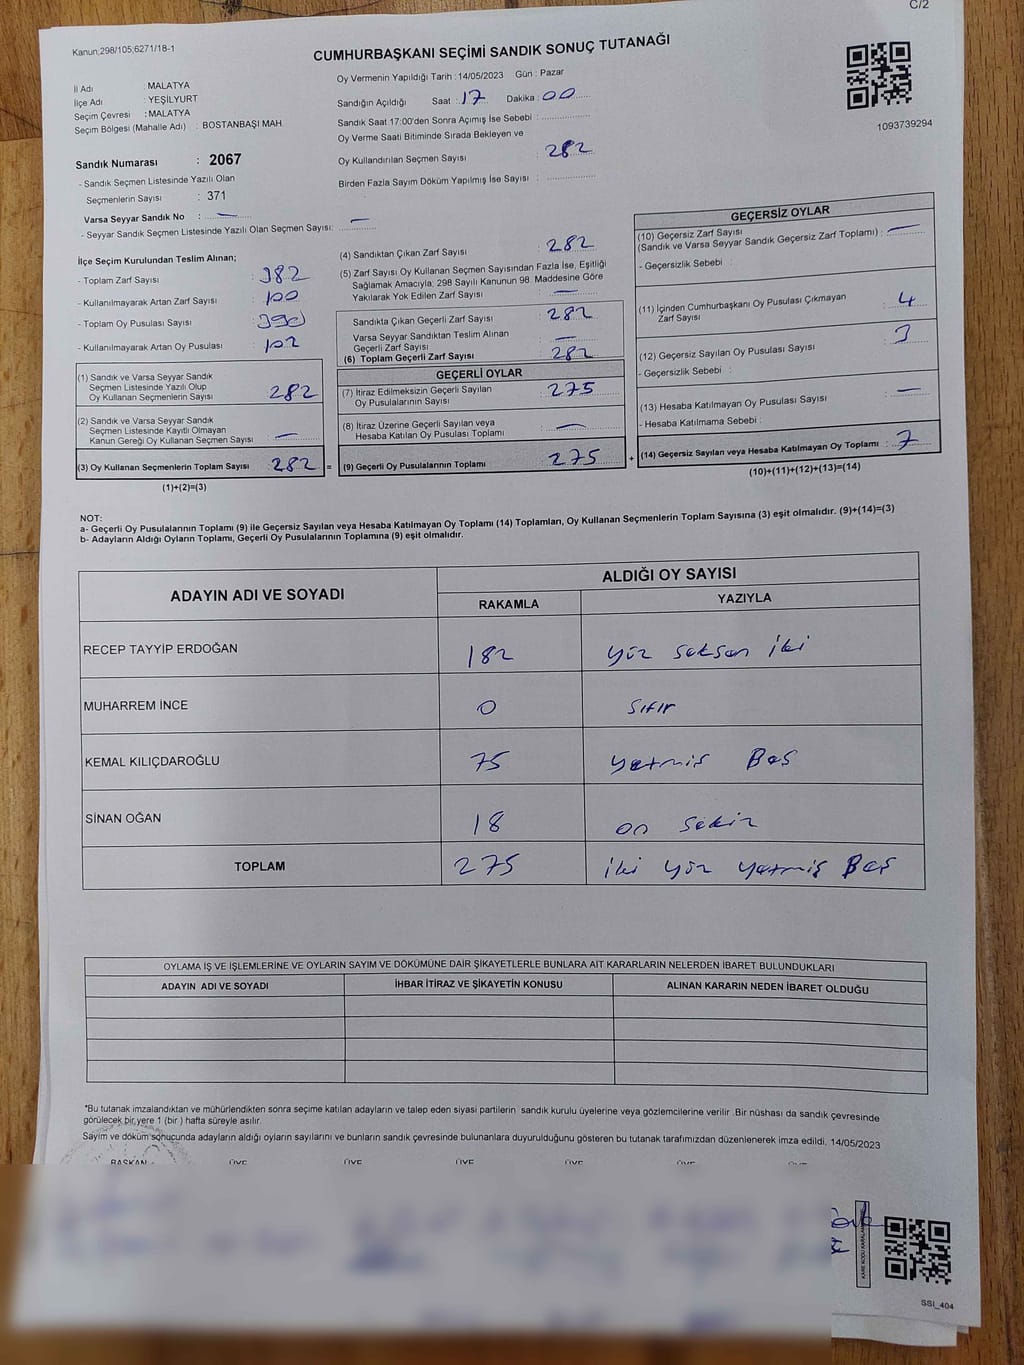 C/2
Kanun;298/105;6271/18-1
CUMHURBAŞKANI SEÇİMİ SANDIK SONUÇ TUTANAĞI
İl Adı : MALATYA
İlçe Adı : YEŞİLYURT
Seçim Çevresi : MALATYA
Seçim Bölgesi (Mahalle Adı) : BOSTANBAŞI MAH.
Oy Vermenin Yapıldığı Tarih : 14/05/2023 Gün : Pazar
Sandığın Açıldığı Saat : 17 Dakika : 00
Sandık Saat 17:00'den Sonra Açılmış İse Sebebi :
Oy Verme Saati Bitiminde Sırada Bekleyen ve
Oy Kullandırılan Seçmen Sayısı : 282
Birden Fazla Sayım Döküm Yapılmış İse Sayısı :
1093739294
Sandık Numarası : 2067
- Sandık Seçmen Listesinde Yazılı Olan
Seçmenlerin Sayısı : 371
Varsa Seyyar Sandık No : —
- Seyyar Sandık Seçmen Listesinde Yazılı Olan Seçmen Sayısı: —
İlçe Seçim Kurulundan Teslim Alınan;
- Toplam Zarf Sayısı : 382
- Kullanılmayarak Artan Zarf Sayısı : 100
- Toplam Oy Pusulası Sayısı :
- Kullanılmayarak Artan Oy Pusulası : 102
(1) Sandık ve Varsa Seyyar Sandık
Seçmen Listesinde Yazılı Olup
Oy Kullanan Seçmenlerin Sayısı : 282
(2) Sandık ve Varsa Seyyar Sandık
Seçmen Listesinde Kayıtlı Olmayan
Kanun Gereği Oy Kullanan Seçmen Sayısı : —
(3) Oy Kullanan Seçmenlerin Toplam Sayısı : 282 =
(1)+(2)=(3)
(4) Sandıktan Çıkan Zarf Sayısı : 282
(5) Zarf Sayısı Oy Kullanan Seçmen Sayısından Fazla İse, Eşitliği
Sağlamak Amacıyla; 298 Sayılı Kanunun 98. Maddesine Göre
Yakılarak Yok Edilen Zarf Sayısı : —
Sandıkta Çıkan Geçerli Zarf Sayısı : 282
Varsa Seyyar Sandıktan Teslim Alınan
Geçerli Zarf Sayısı : —
(6) Toplam Geçerli Zarf Sayısı : 282
GEÇERLİ OYLAR
(7) İtiraz Edilmeksizin Geçerli Sayılan
Oy Pusulalarının Sayısı : 275
(8) İtiraz Üzerine Geçerli Sayılan veya
Hesaba Katılan Oy Pusulası Toplamı : —
(9) Geçerli Oy Pusulalarının Toplamı : 275 +
GEÇERSİZ OYLAR
(10) Geçersiz Zarf Sayısı
(Sandık ve Varsa Seyyar Sandık Geçersiz Zarf Toplamı) : —
- Geçersizlik Sebebi :
(11) İçinden Cumhurbaşkanı Oy Pusulası Çıkmayan
Zarf Sayısı : 4
(12) Geçersiz Sayılan Oy Pusulası Sayısı : 3
- Geçersizlik Sebebi :
(13) Hesaba Katılmayan Oy Pusulası Sayısı : —
- Hesaba Katılmama Sebebi :
(14) Geçersiz Sayılan veya Hesaba Katılmayan Oy Toplamı : 7
(10)+(11)+(12)+(13)=(14)
NOT:
a- Geçerli Oy Pusulalarının Toplamı (9) ile Geçersiz Sayılan veya Hesaba Katılmayan Oy Toplamı (14) Toplamları, Oy Kullanan Seçmenlerin Toplam Sayısına (3) eşit olmalıdır. (9)+(14)=(3)
b- Adayların Aldığı Oyların Toplamı, Geçerli Oy Pusulalarının Toplamına (9) eşit olmalıdır.
ADAYIN ADI VE SOYADI
ALDIĞI OY SAYISI
RAKAMLA YAZIYLA
RECEP TAYYİP ERDOĞAN 182 yüz seksen iki
MUHARREM İNCE 0 sıfır
KEMAL KILIÇDAROĞLU 75 yetmiş Beş
SİNAN OĞAN 18 on sekiz
TOPLAM 275 iki yüz yetmiş Beş
OYLAMA İŞ VE İŞLEMLERİNE VE OYLARIN SAYIM VE DÖKÜMÜNE DAİR ŞİKAYETLERLE BUNLARA AİT KARARLARIN NELERDEN İBARET BULUNDUKLARI
ADAYIN ADI VE SOYADI İHBAR İTİRAZ VE ŞİKAYETİN KONUSU ALINAN KARARIN NEDEN İBARET OLDUĞU
*Bu tutanak imzalandıktan ve mühürlendikten sonra seçime katılan adayların ve talep eden siyasi partilerin sandık kurulu üyelerine veya gözlemcilerine verilir. Bir nüshası da sandık çevresinde
görülecek bir yere 1 (bir ) hafta süreyle asılır.
Sayım ve döküm sonucunda adayların aldığı oyların sayılarını ve bunların sandık çevresinde bulunanlara duyurulduğunu gösteren bu tutanak tarafımızdan düzenlenerek imza edildi. 14/05/2023
BAŞKAN ÜYE ÜYE ÜYE ÜYE ÜYE ÜYE
SSI_404